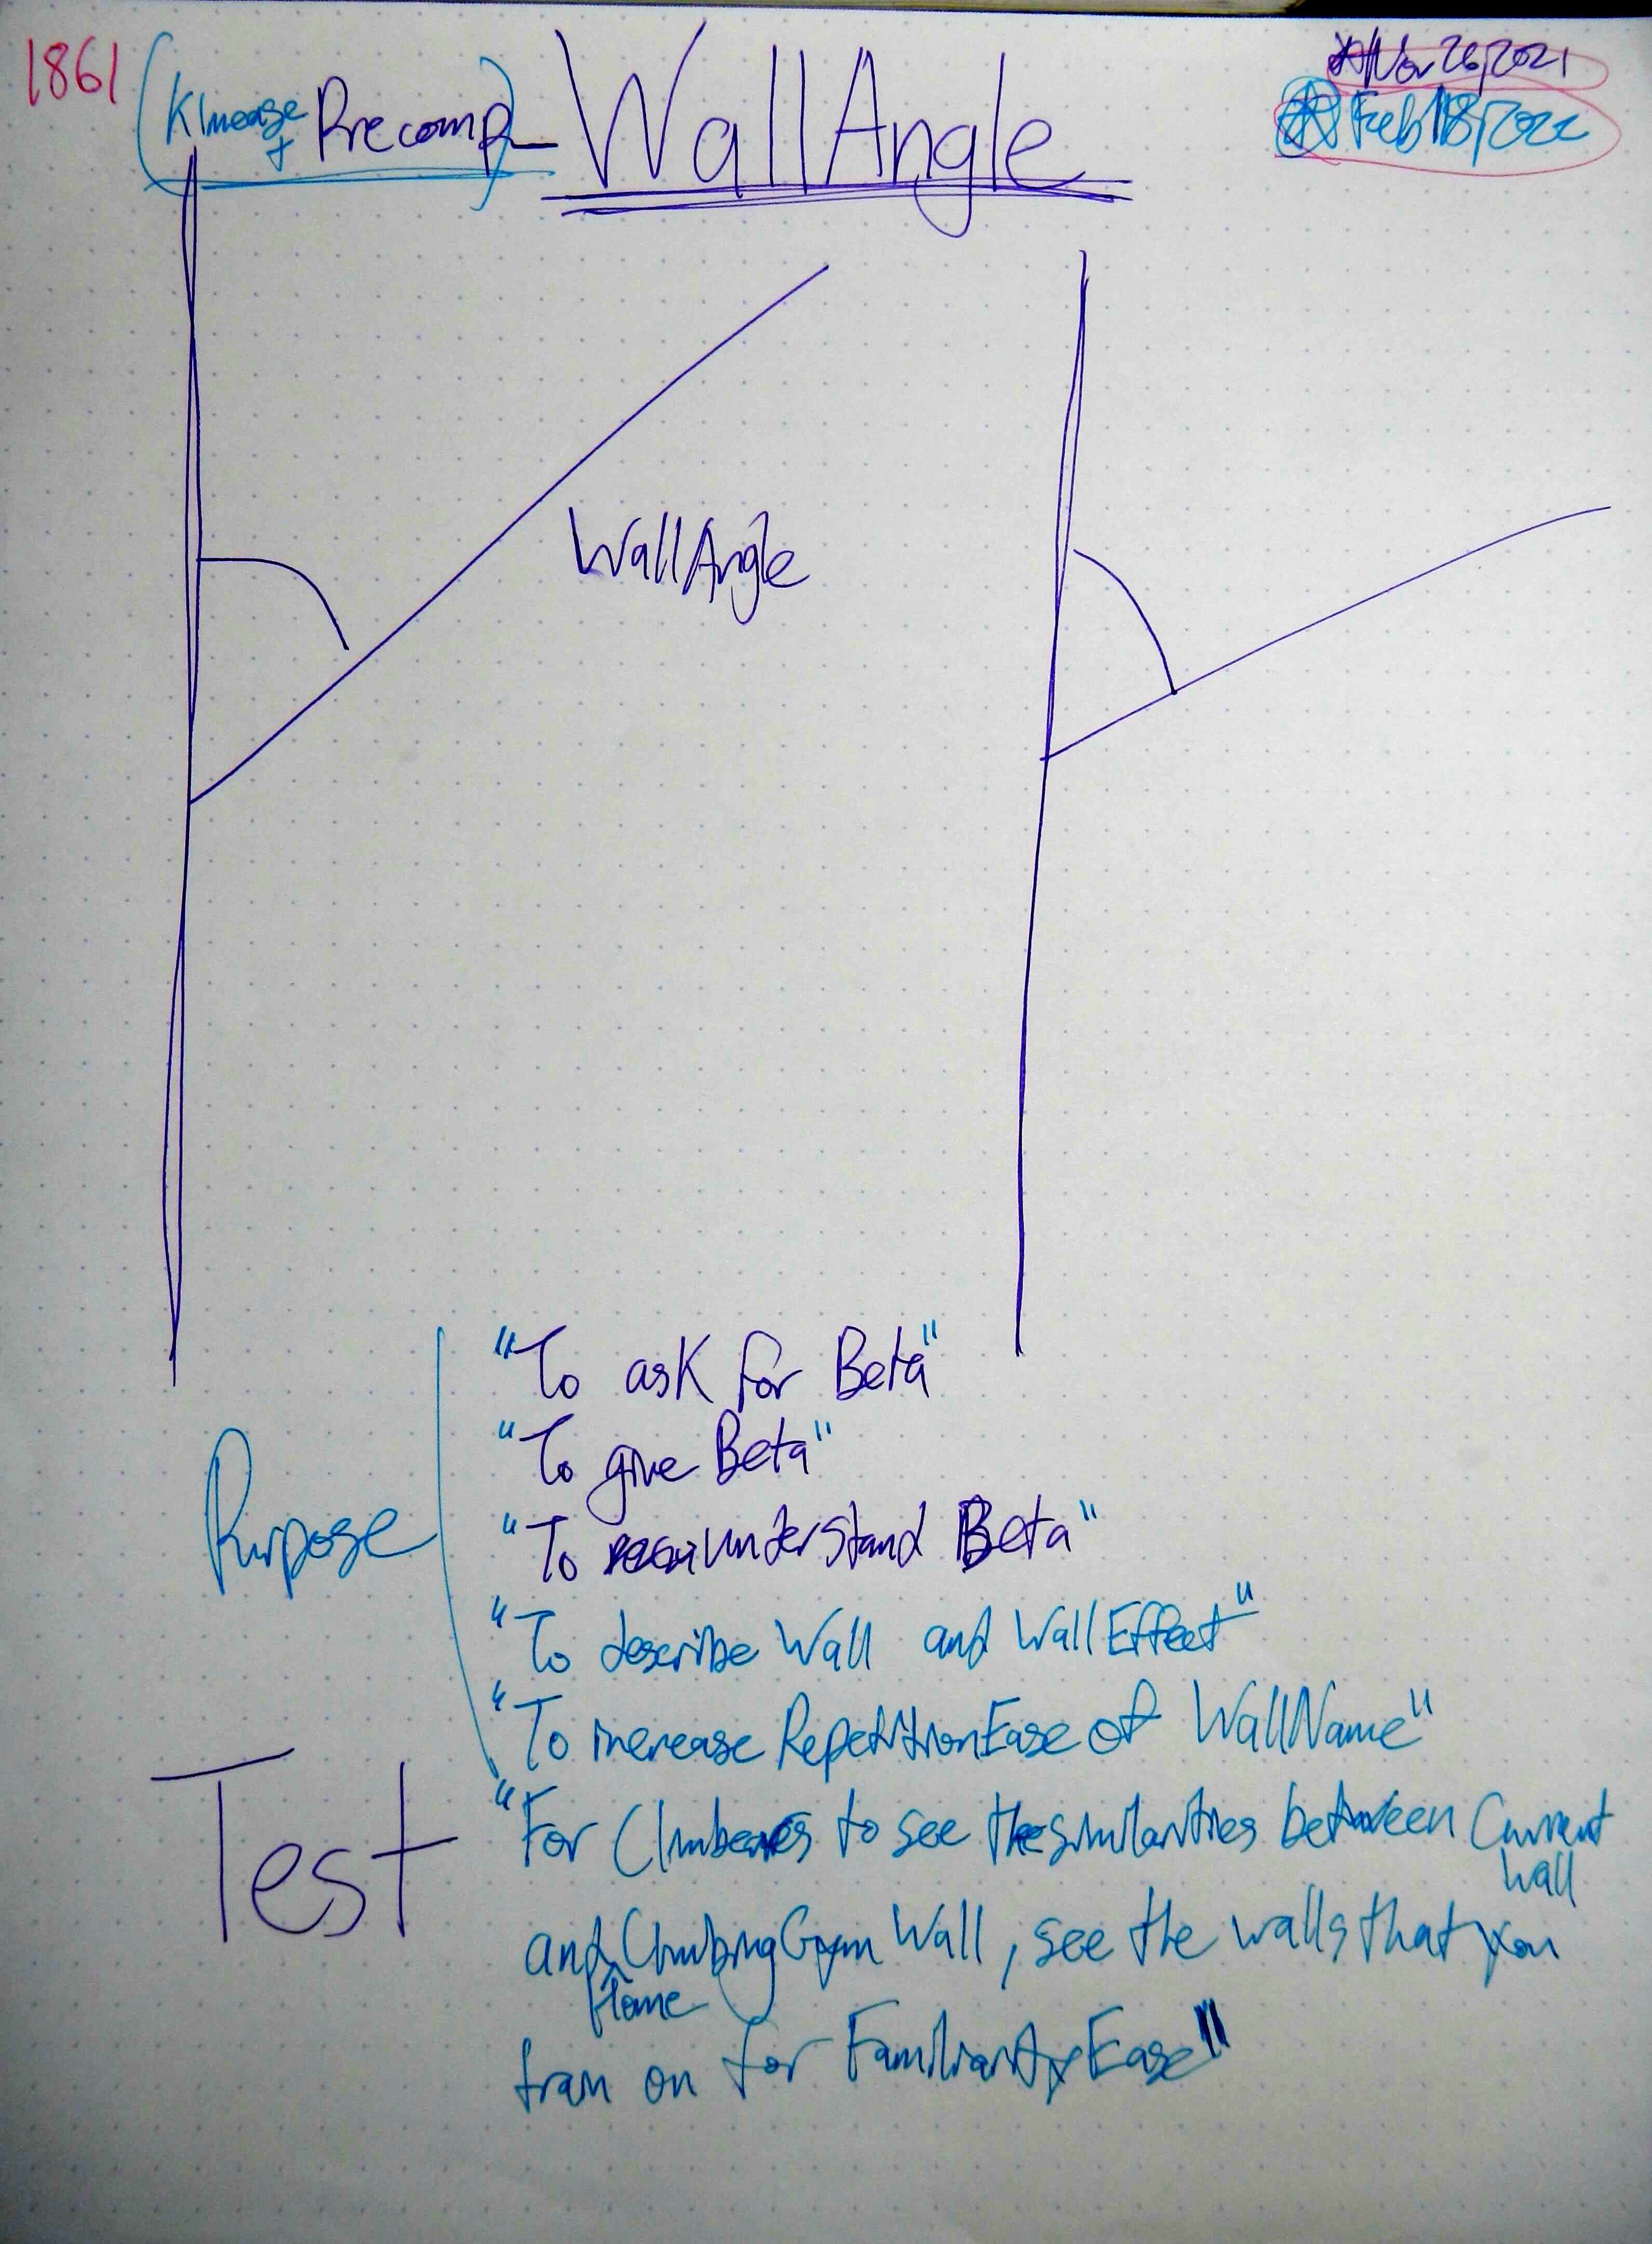 1861 (Klinease + Precomp) - WallAngle
Nov 26, 2021
Feb 18, 2022
WallAngle
"To ask for Beta"
"To give Beta"
Purpose
"To understand Beta"
"To describe Wall and WallEffect"
"To increase RepetitionEase of WallName"
Test
"For Climbers to see the similarities between Current
Wall
and ClimbingGym Wall, see the walls that you
Home
train on for FamiliarityEase"